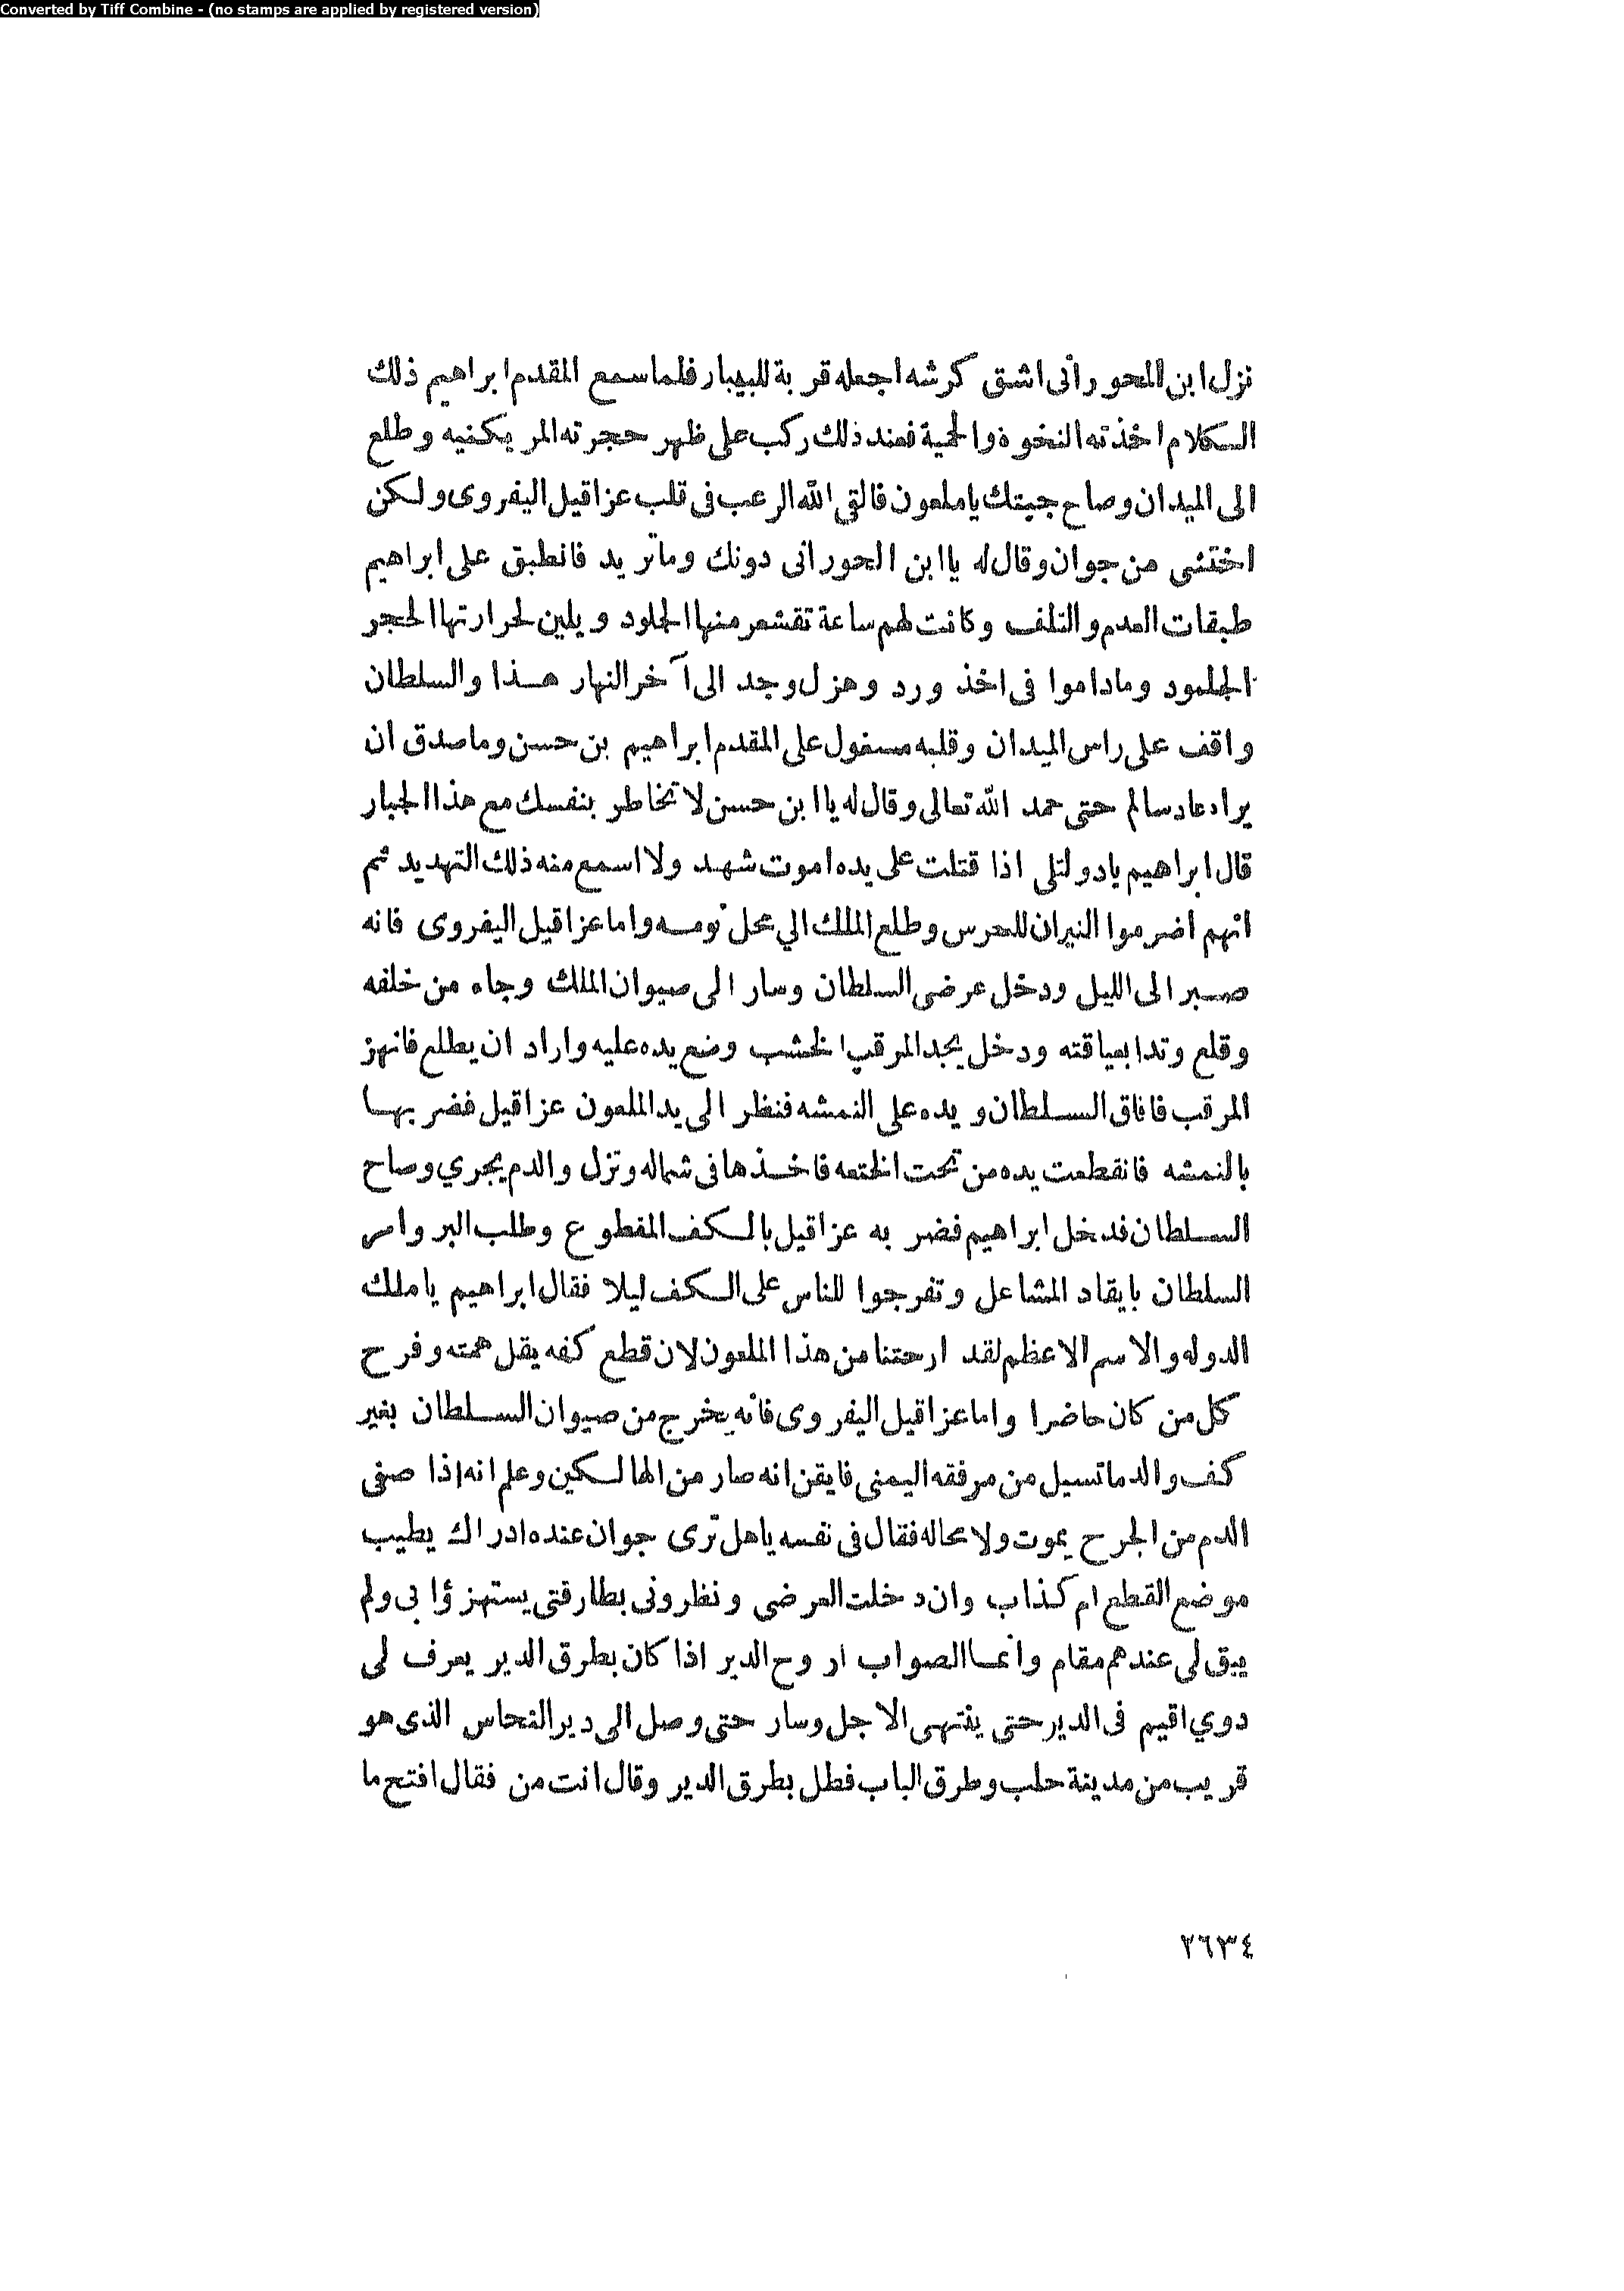 Converted by Tiff Combine - (no stamps are applied by registered version)
نزل ابن الحوراني اشق كرشه اجعله قربة للبيبار فلما سمع المقدم ابراهيم ذلك
الكلام اخذته النخوة والحمية فعند ذلك ركب على ظهر حجرته المريكنيه وطلع
الى الميدان وصاح جيتك ياملعون فالتى الله الرعب فى قلب عزاقيل اليفروى ولكن
اختشى من جوان وقال له ياابن الحورانى دونك وماتريد فانطبق على ابراهيم
طبقات العدم والتلف وكانت لهم ساعة تقشعر منها الجلود ويلين لحرارتها الحجر
الجلمود وماداموا فى اخذ ورد وهزل وجد الى آخر النهار هذا والسلطان
واقف على راس الميدان وقلبه مسغول على المقدم ابراهيم بن حسن وماصدق ان
يراد عاد سالم حتى حمد الله تعالى وقال له ياابن حسن لاتخاطر بنفسك مع هذا الجبار
قال ابراهيم يادولتلى اذا قتلت على يده اموت شهد ولا اسمع منه ذلك التهديد ثم
انهم اضرموا النيران للحرس وطلع الملك الي محل نومه واما عزاقيل اليفروى فانه
صبر الى الليل ودخل عرضى السلطان وسار الى صيوان الملك وجاه من خلفه
وقلع وتدا بعياقته ودخل يجد المرقب الخشب وضع يده عليه واراد ان يطلع فانهز
المرقب فافاق السلطان ويده على النمشه فنظر الى يد الملعون عزاقيل فضر بها
بالنمشه فانقطعت يده من تحت الختعه فاخذها فى شماله ونزل والدم يجري وصاح
السلطان فدخل ابراهيم فضر به عزاقيل بالكف المقطوع وطلب البر وامر
السلطان بايقاد المشاعل وتفرجوا للناس على الكف ليلا فقال ابراهيم ياملك
الدوله والاسم الاعظم لقد ارحتنا من هذا الملعون لان قطع كفه يقل همته وفرح
كل من كان حاضرا واما عزاقيل اليفروى فانه يخرج من صيوان السلطان بغير
كف والدماتسيل من مرفقه اليمنى فايقن انه صار من الهالكين وعلم انه اذا صفى
الدم من الجرح يموت ولا محاله فقال فى نفسه ياهل ترى جوان عنده ادراك يطيب
موضع القطع ام كذاب وان دخلت العرضى ونظرونى بطارقتى يستهزؤا بى ولم
يبق لى عندهم مقام وانما الصواب اروح الدير اذا كان بطرق الدير يعرف لى
دوي اقيم فى الدير حتى ينتهى الاجل وسار حتى وصل الى دير النحاس الذى هو
قريب من مدينة حلب وطرق الباب فطل بطرق الدير وقال انت من فقال افتح ما
٢٦٣٤